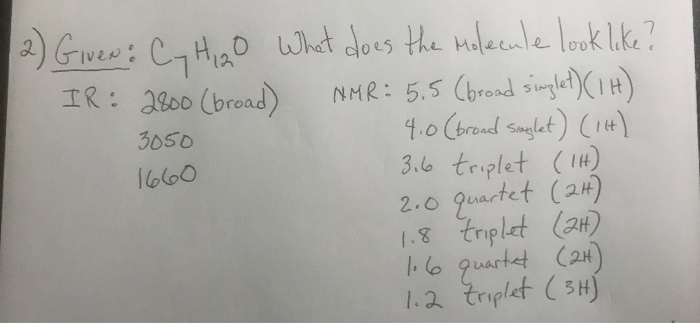 2) Given: C7H12O What does the Molecule look like?
IR: 2800 (broad) NMR: 5.5 (broad singlet) (1H)
4.0 (broad singlet) (1H)
3050
3.6 triplet (1H)
1660
2.0 quartet (2H)
1.8 triplet (2H)
1.6 quartet (2H)
1.2 triplet (3H)